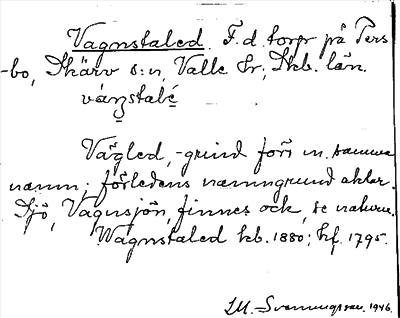 Vagnstaled. F.d. torp på Pers
-bo, Skärv s:n, Valle hr; Skb. län.
váŋstalé
Vägled, -grind förr m. samma
namn; förledens namngrund oklar.
Sjö, Vagnsjön, finnes ock, se nedan.
Wagnstaled kb. 1880; hf. 1795.
1946.